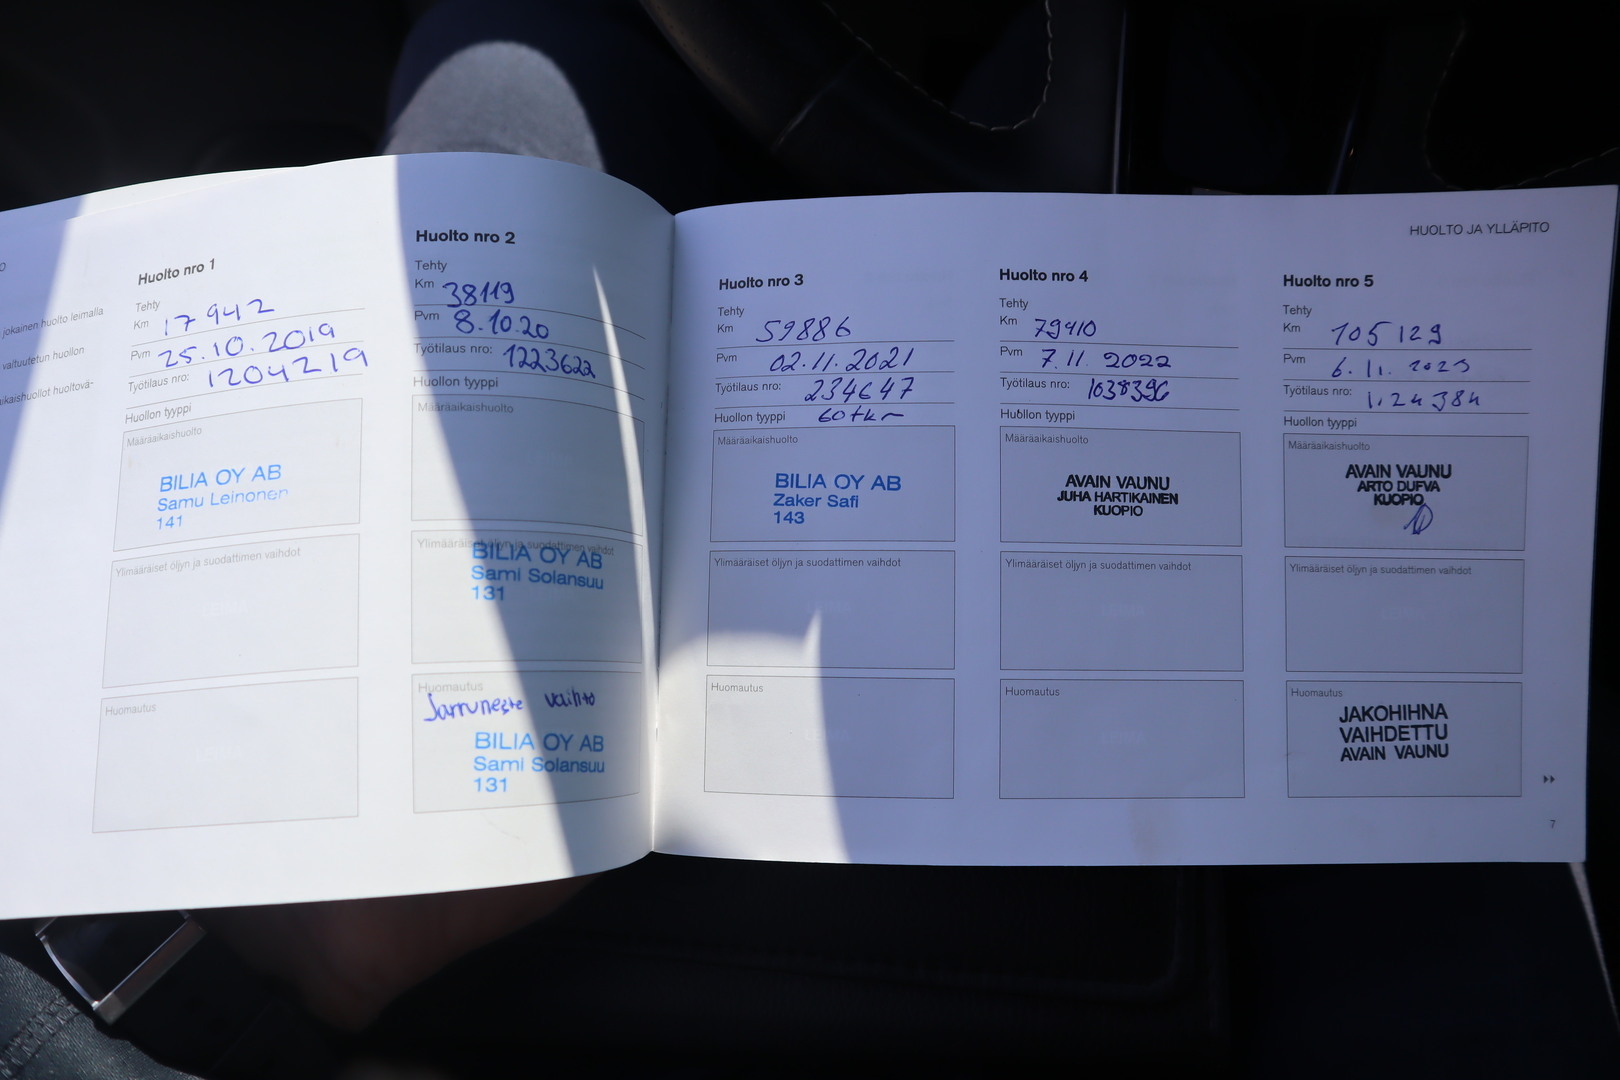 O
jokainen huolto leimalla
valtuutetun huollon
aikaishuollot huoltovä-
Huolto nro 1
Tehty
Km 17 942
Pvm 25.10.2019
Työtilaus nro: 1204219
Huollon tyyppi
Määräaikaishuolto
BILIA OY AB
Samu Leinonen
141
Ylimääräiset öljyn ja suodattimen vaihdot
Huomautus
Huolto nro 2
Tehty
Km 38119
Pvm 8.10.20
Työtilaus nro: 1223622
Huollon tyyppi
Määräaikaishuolto
Ylimääräiset öljyn ja suodattimen vaihdot
BILIA OY AB
Sami Solansuu
131
Huomautus
Jarruneste vaihto
BILIA OY AB
Sami Solansuu
131
HUOLTO JA YLLÄPITO
Huolto nro 3
Tehty
Km 59886
Pvm 02.11.2021
Työtilaus nro: 234647
Huollon tyyppi 60tkm
Määräaikaishuolto
BILIA OY AB
Zaker Safi
143
Ylimääräiset öljyn ja suodattimen vaihdot
Huomautus
Huolto nro 4
Tehty
Km 79410
Pvm 7.11.2022
Työtilaus nro: 1038396
Huollon tyyppi
Määräaikaishuolto
AVAIN VAUNU
JUHA HARTIKAINEN
KUOPIO
Ylimääräiset öljyn ja suodattimen vaihdot
Huomautus
Huolto nro 5
Tehty
Km 105129
Pvm 6.11.2023
Työtilaus nro:
Huollon tyyppi
Määräaikaishuolto
AVAIN VAUNU
ARTO DUFVA
KUOPIO
Ylimääräiset öljyn ja suodattimen vaihdot
Huomautus
JAKOHIHNA
VAIHDETTU
AVAIN VAUNU
7